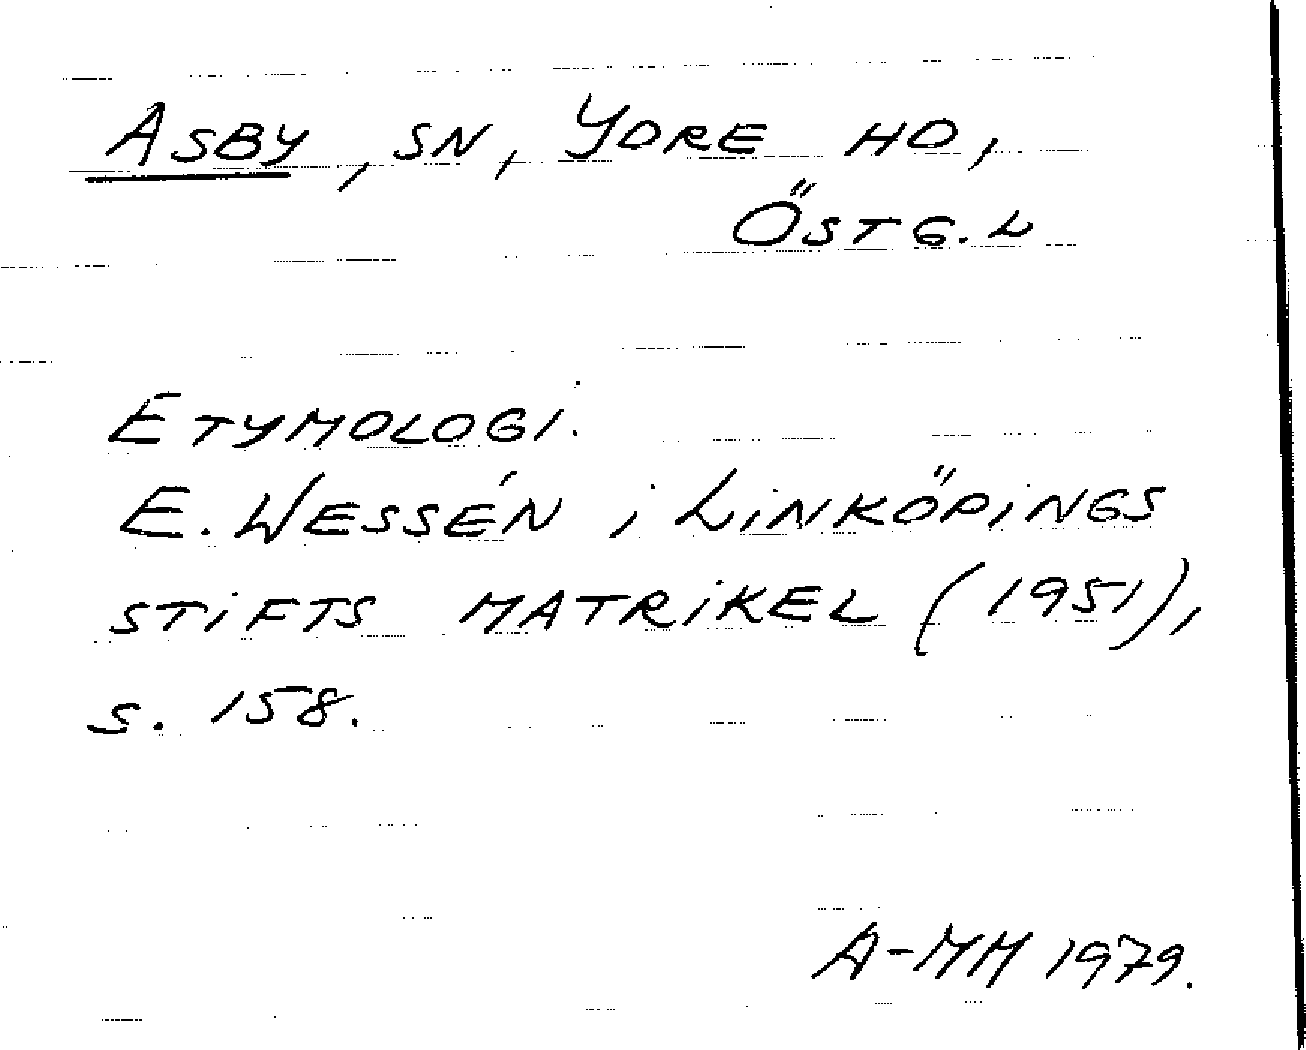 ASBY, SN, YDRE HD,
ÖSTG. L
ETYMOLOGI.
E. WESSÉN i LINKÖPINGS
STIFTS MATRIKEL (1951),
S. 158.
A-MM 1979.